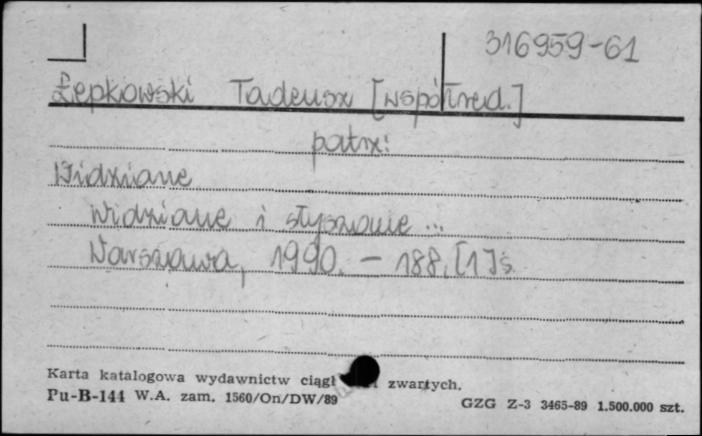 316959-61
Łepkowski Tadeusz [współred.]
patrz:
Widziane
Widziane i słyszane ...
Warszawa, 1990. - 188, [1] s.
Karta katalogowa wydawnictw ciągł zwartych.
Pu-B-144 W.A. zam. 1560/On/DW/89
GZG Z-3 3465-89 1.500.000 szt.